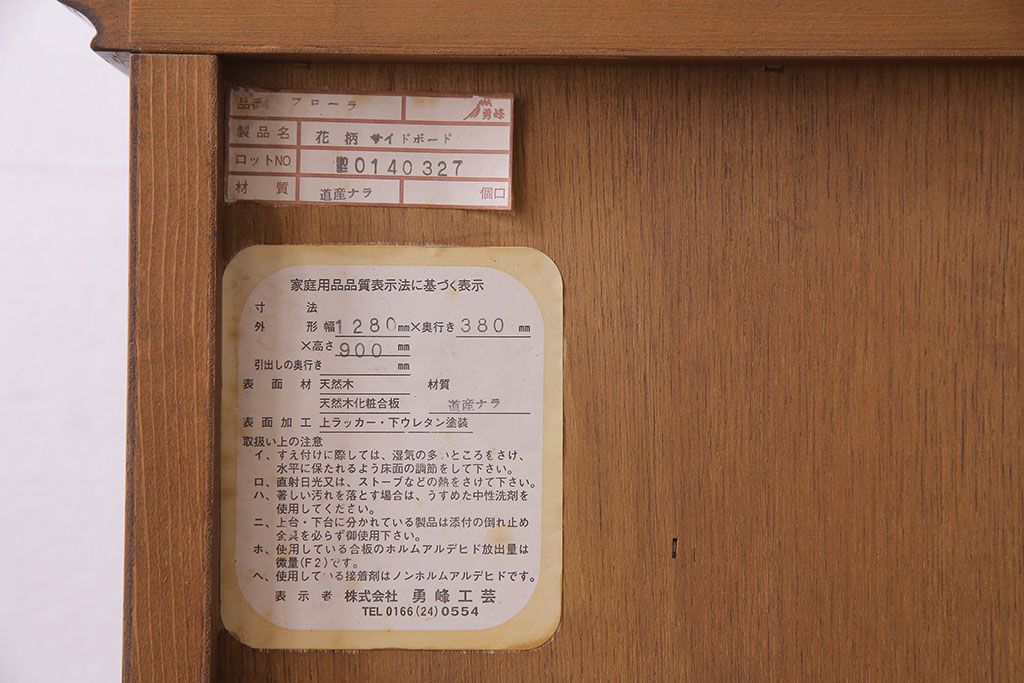 品番 フローラ 勇峰
製品名 花柄 サイドボード
ロットNO 0140327
材質 道産ナラ 個口
家庭用品品質表示法に基づく表示
寸法
外形 幅1280mm×奥行き380mm
×高さ900mm
引出しの奥行き mm
表面材 天然木 材質
天然木化粧合板 道産ナラ
表面加工 上ラッカー・下ウレタン塗装
取扱い上の注意
イ、すえ付けに際しては、湿気の多いところをさけ、
水平に保たれるよう床面の調節をして下さい。
ロ、直射日光又は、ストーブなどの熱をさけて下さい。
ハ、著しい汚れを落とす場合は、うすめた中性洗剤を
使用してください。
ニ、上台・下台に分かれている製品は添付の倒れ止め
金具を必らず御使用下さい。
ホ、使用している合板のホルムアルデヒド放出量は
微量(F2)です。
ヘ、使用している接着剤はノンホルムアルデヒドです。
表示者 株式会社 勇峰工芸
TEL 0166(24)0554